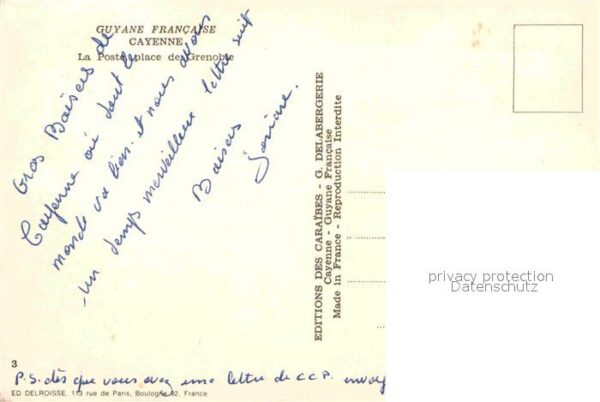 GUYANE FRANÇAISE
CAYENNE
La Poste place de Grenoble
Gros Baisers de
Cayenne où tout le
monde va bien. et nous avons
un temps merveilleux lettre suit
Baisers
Josiane.
EDITIONS DES CARAÏBES - G. DELABERGERIE
Cayenne - Guyane Française
Made in France - Reproduction Interdite
privacy protection
Datenschutz
3
P.S. dès que vous avez une lettre de CCP. envoy
ED DELROISSE. 113 rue de Paris, Boulogne 92, France